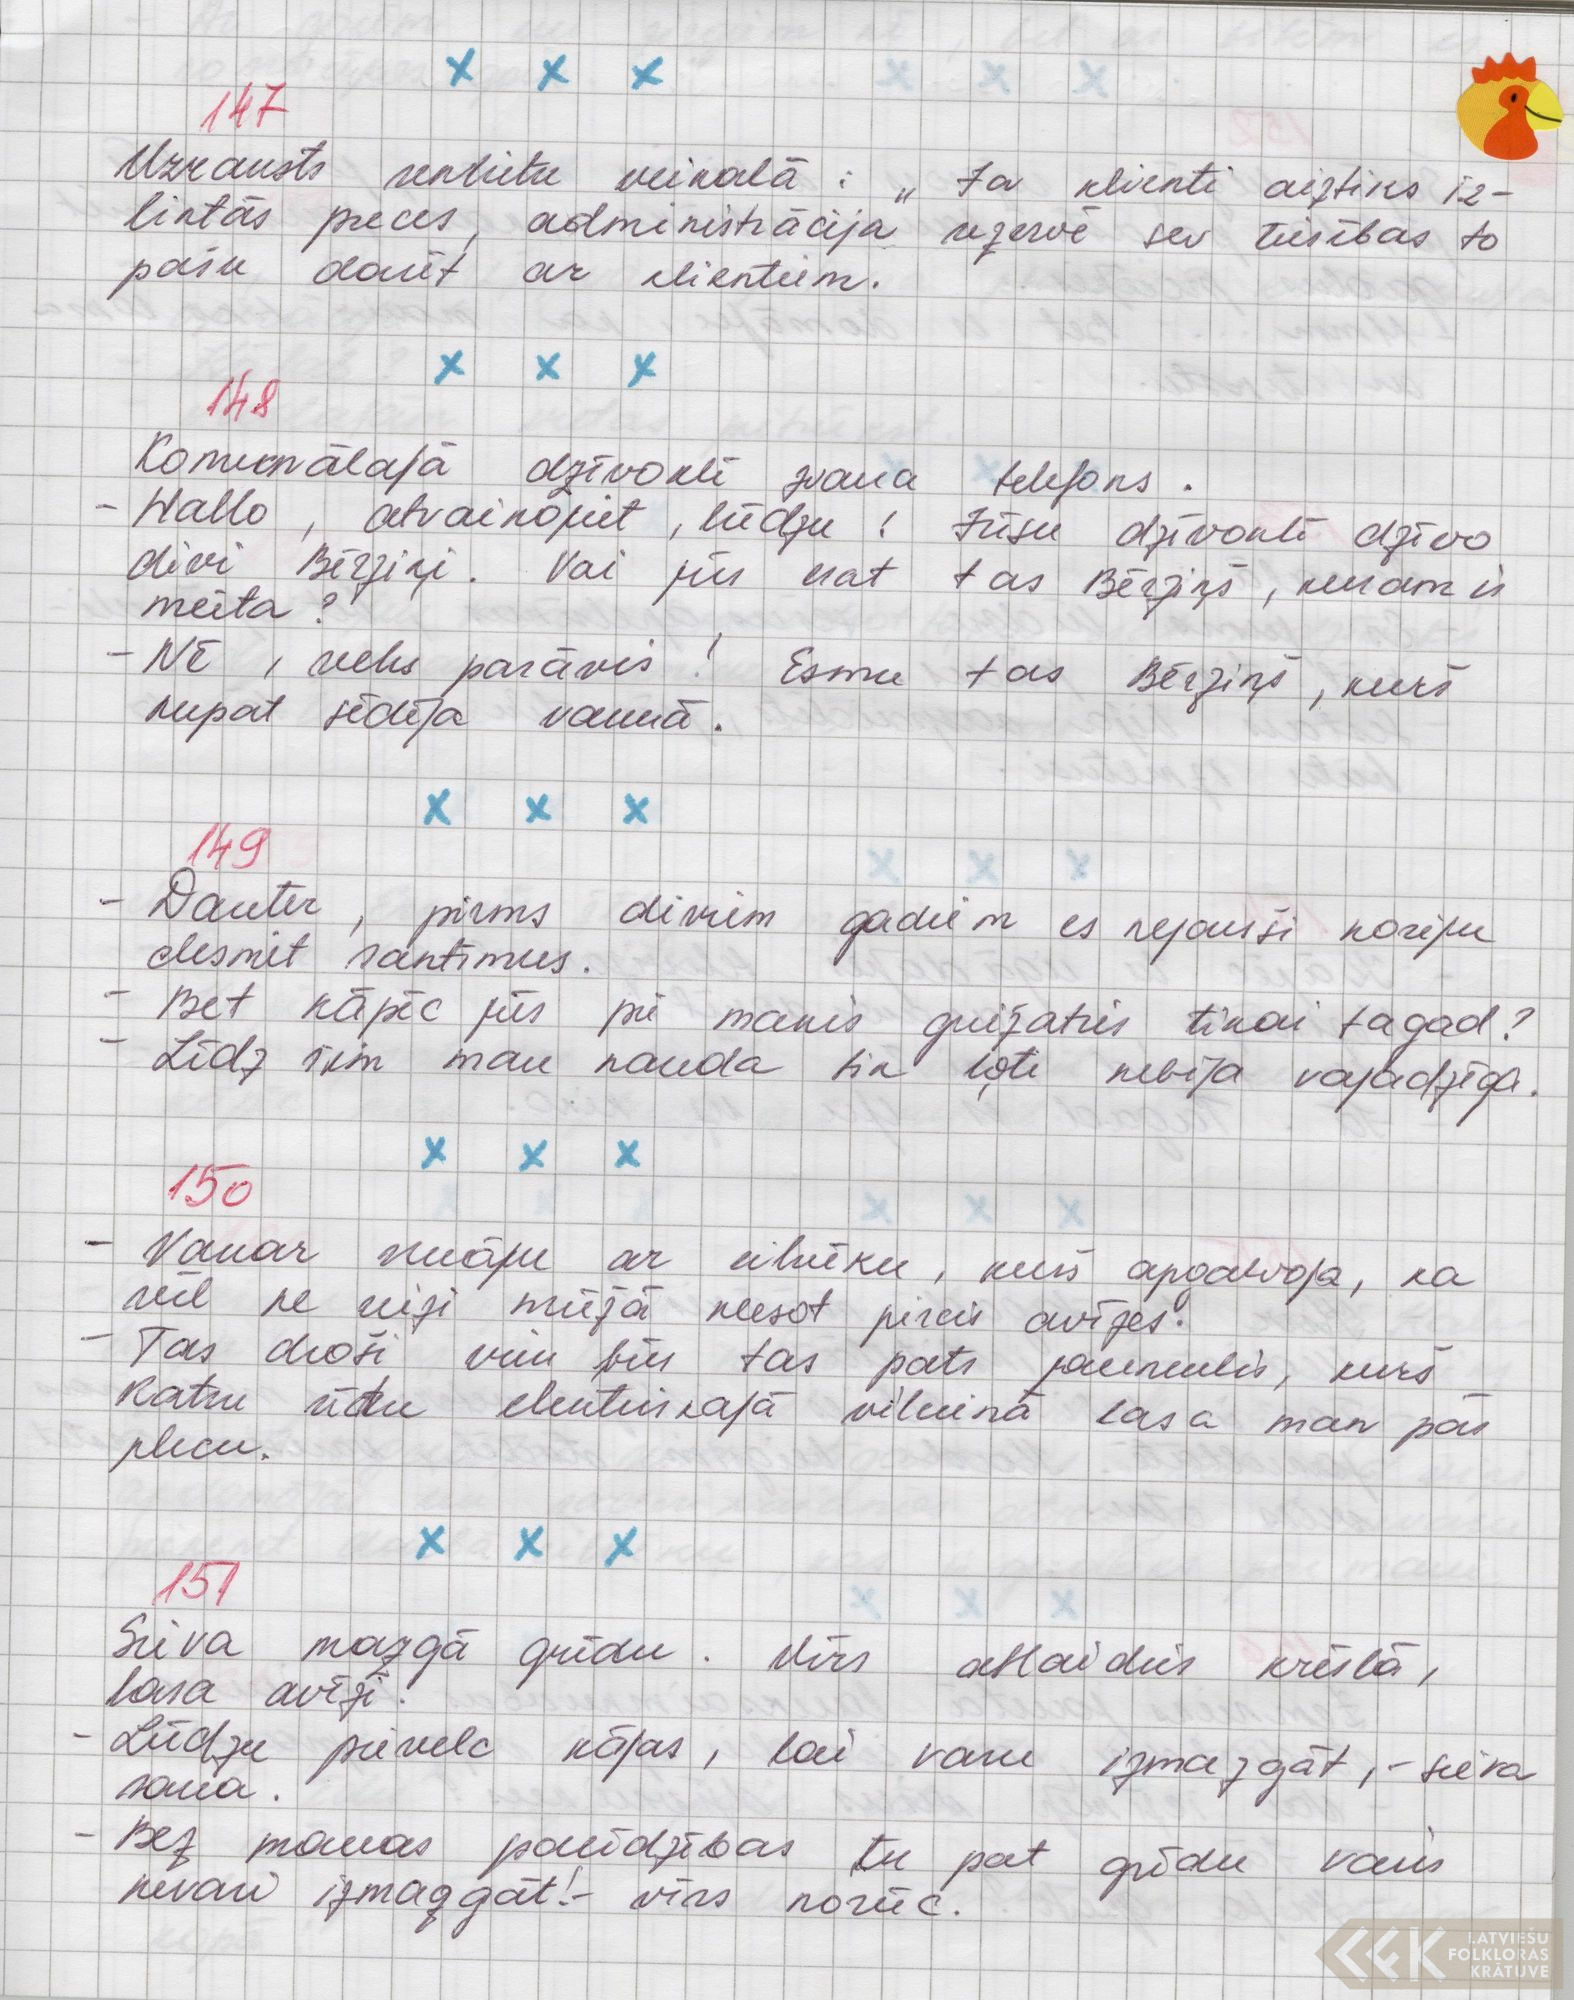 x x x
147
Uzraksts veikalā : „ Ja klienti aiztiks iz-
liktās preces, administrācija rezervē sev tiesības to
pašu darīt ar klientiem.
x x x
148
Komunālajā dzīvoklī zvana telefons.
- Hallo, atvainojiet, lūdzu! Jūsu dzīvoklī dzīvo
divi Bērziņi. Vai jūs esat tas Bērziņš, kuram ir
meita?
- Nē, velns parāvis! Esmu tas Bērziņš, kurš
nupat sēdēja vannā.
x x x
149
- Dakter, pirms diviem gadiem es nejauši noriju
desmit santīmus.
- Bet kāpēc jūs pie manis griežaties tikai tagad?
- Līdz šim man nauda tik ļoti nebija vajadzīga.
x x x
150
- Vakar runāju ar cilvēku, kurš apgalvoja, ka
vēl ne reizi mūžā neesot pircis avīzes.
- Tas droši vien būs tas pats jauneklis, kurš
katru rītu elektriskajā vilcienā lasa man pār
plecu.
x x x
151
Sieva mazgā grīdu. Vīrs atlaidies krēslā,
lasa avīzi.
- Lūdzu pievelc kājas, lai varu izmazgāt, - sieva
sauca.
- Bez manas palīdzības tu pat grīdu vairs
nevari izmazgāt! - vīrs norūc.
LATVIEŠU
FOLKLORAS
KRĀTUVE